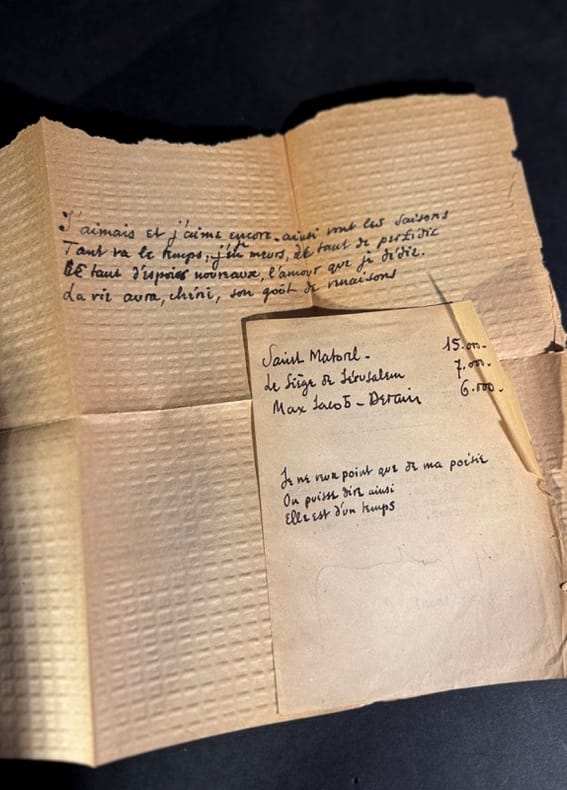 J'aimais et j'aime encore. ainsi vont les saisons
Tant va le temps, j'en meurs, de tant de perfidie
De tant d'espoirs nouveaux, l'amour que je dédie.
La vie aura, chéri, son goût de
Saint Matorel - 15.000-
Le Siège de Jérusalem 7.000-
Max Jacob - Derain 6.000-
Je ne veux point que de ma poésie
On puisse dire ainsi
Elle est d'un temps